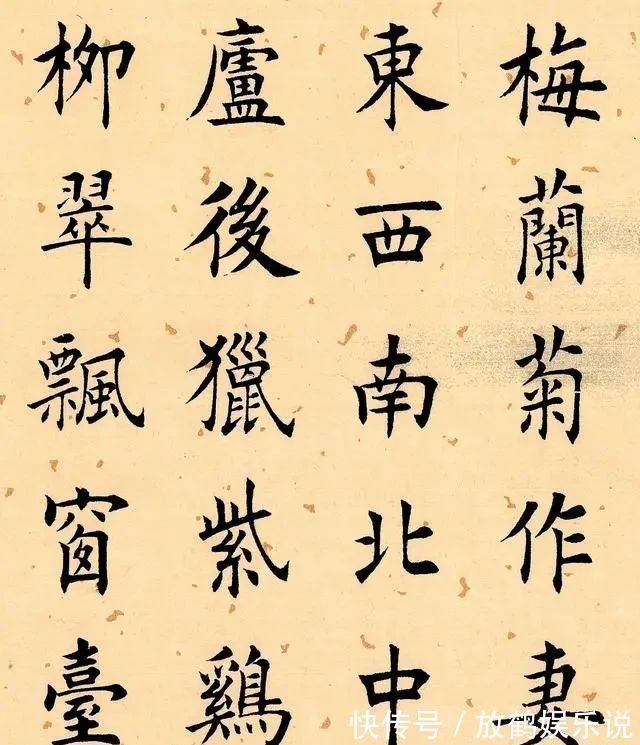 梅蘭菊作
東西南北中
廬後獵紫鷄
柳翠飄窗臺
快传号 / 放鹤娱乐说